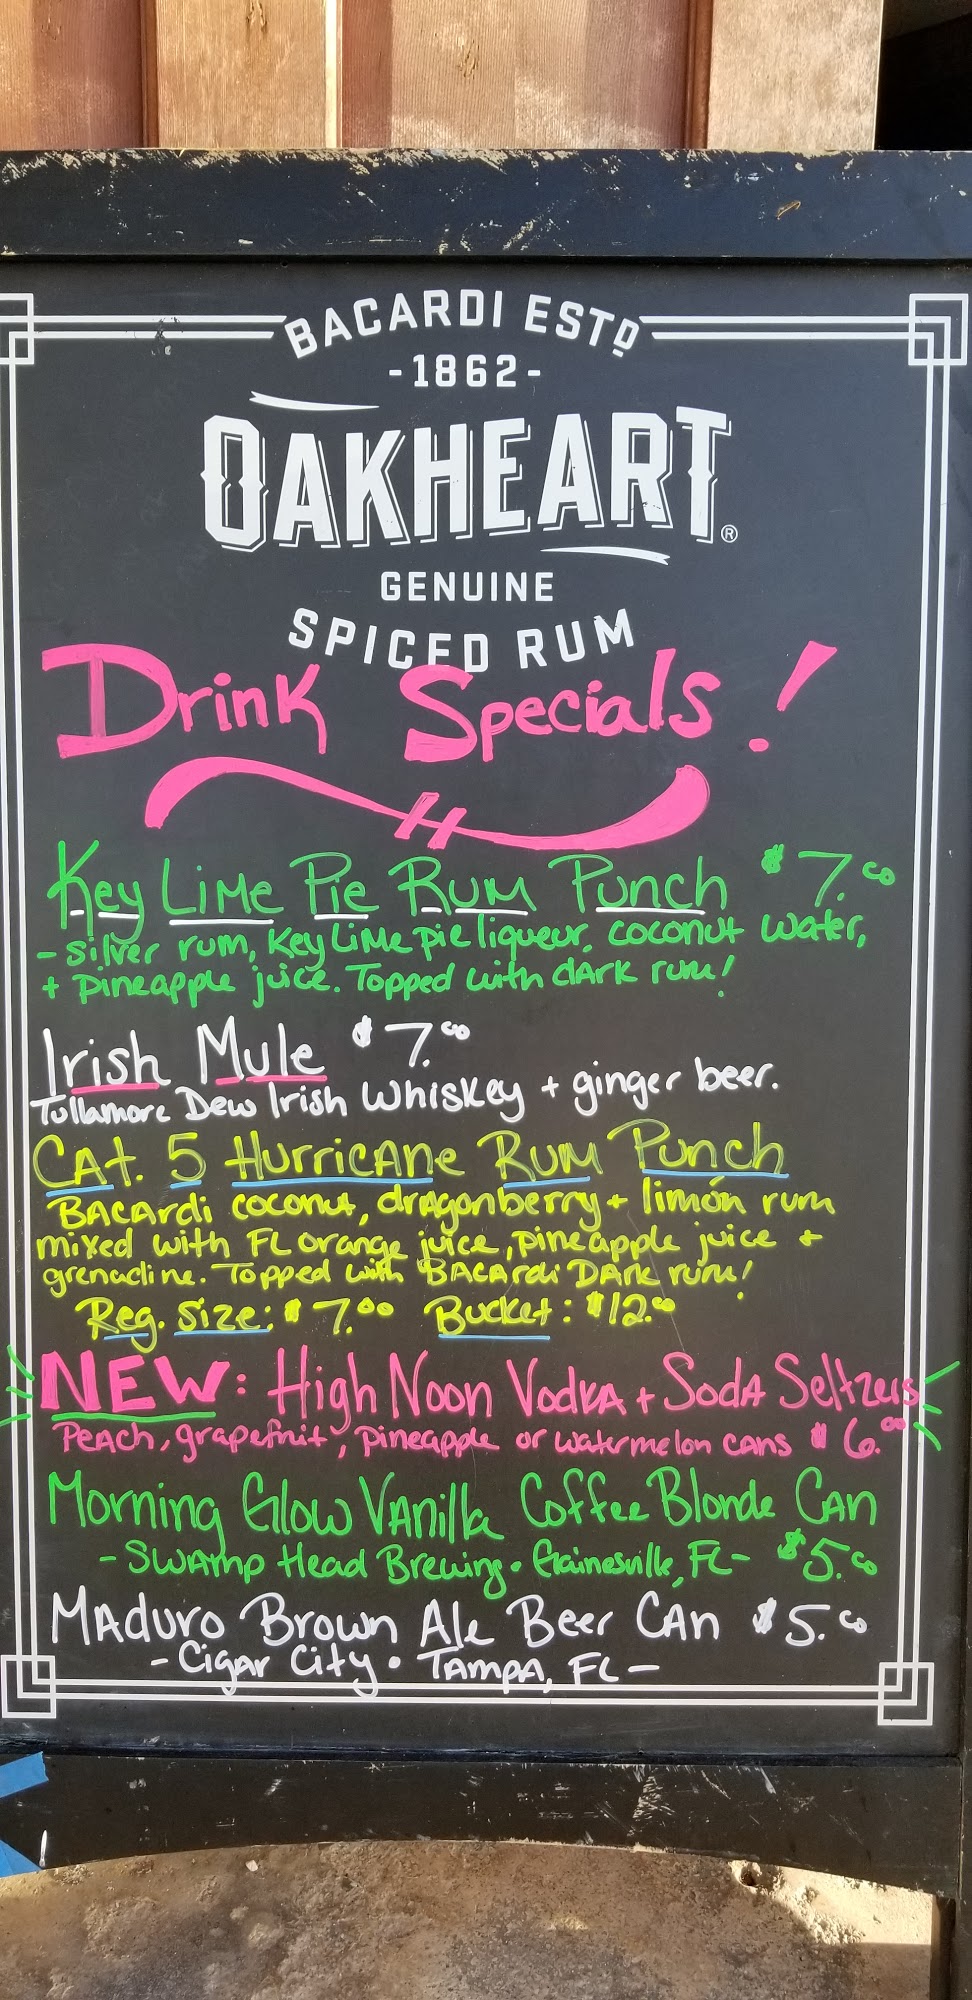 BACARDI ESTD
-1862-
OAKHEART®
GENUINE
SPICED RUM
Drink Specials!
Key Lime Pie Rum Punch $7.00
- silver rum, Key Lime pie liqueur, coconut water,
+ pineapple juice. Topped with dark rum!
Irish Mule $7.00
Tullamore Dew Irish Whiskey + ginger beer.
Cat. 5 Hurricane Rum Punch
BACArdi coconut, dragonberry + limón rum
mixed with FL orange juice, pineapple juice +
grenadine. Topped with BACArdi DArk rum!
Reg. Size: $7.00 Bucket: $12.00
NEW: High Noon Vodka + Soda Seltzers
Peach, grapefruit, pineapple or watermelon cans $6.00
Morning Glow Vanilla Coffee Blonde Can
- Swamp Head Brewing • Gainesville, FL - $5.00
Maduro Brown Ale Beer Can $5.00
- Cigar City • Tampa, FL -